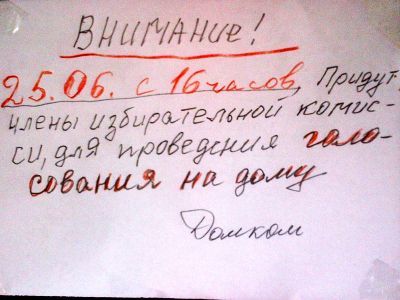 ВНИМАНИЕ!
25.06. с 16 часов, Придут
члены избирательной комис-
си, для проведения голо-
сования на дому
Домком